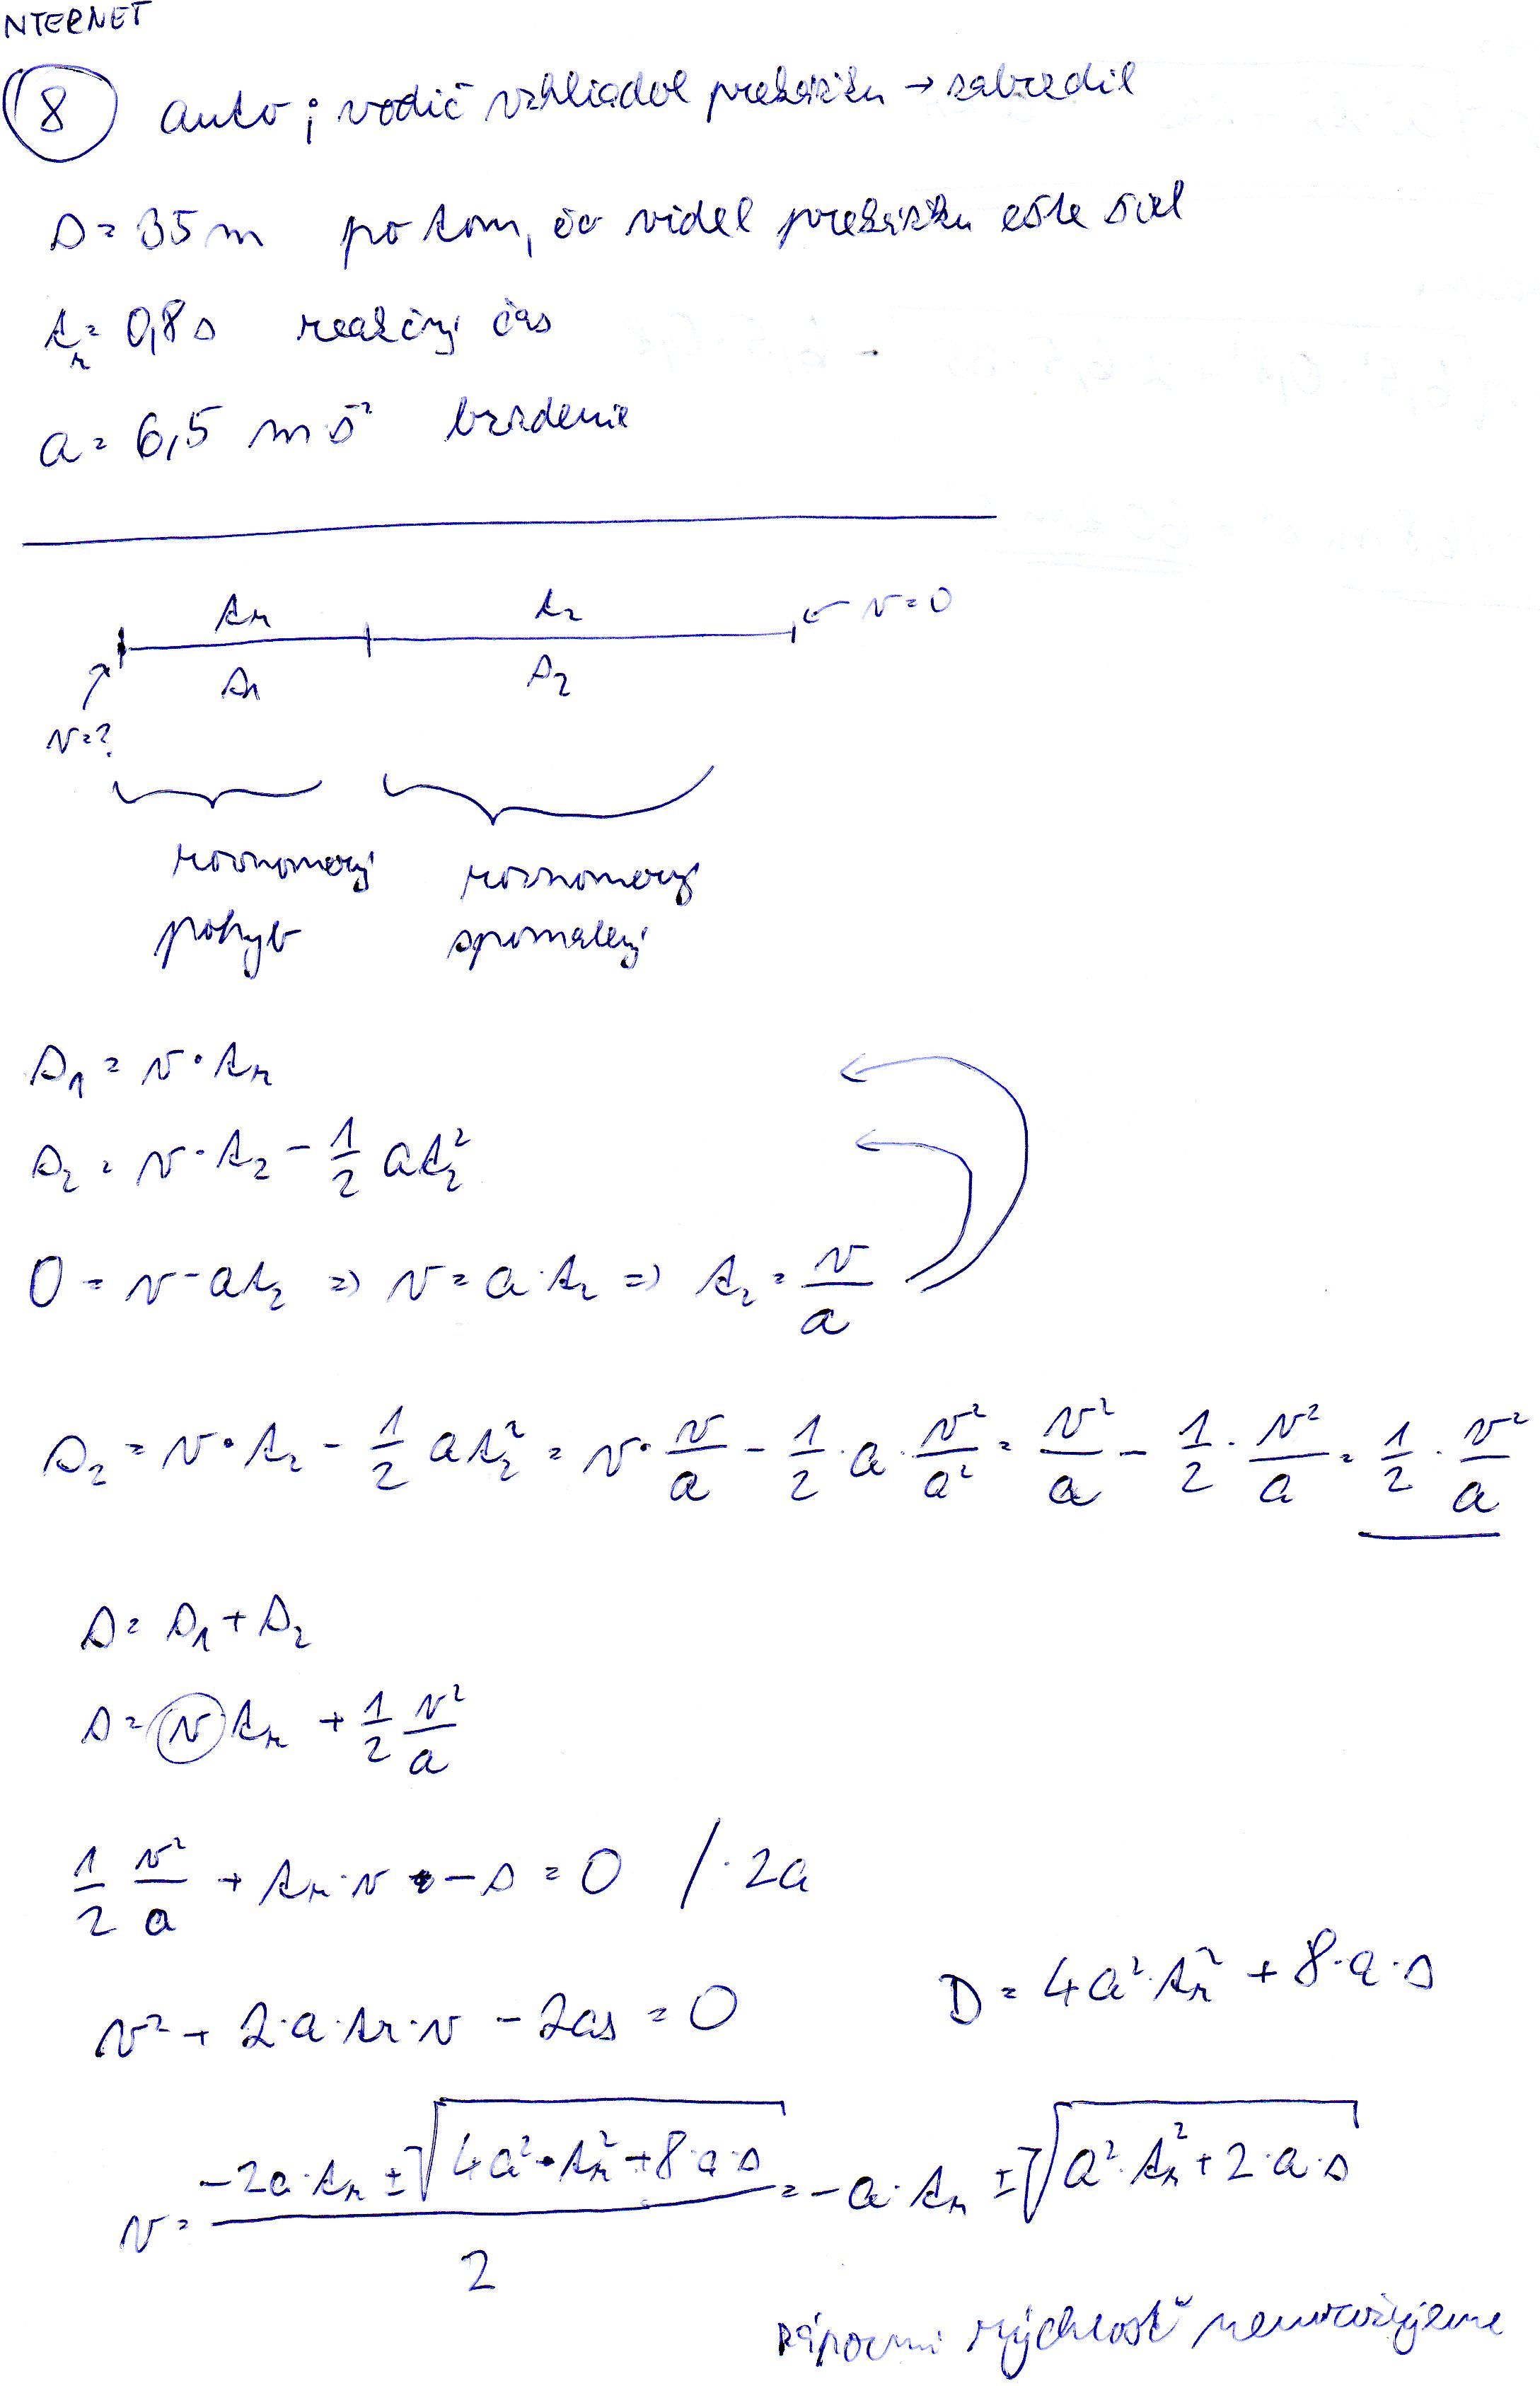 NTERNET
8 auto; vodič vzhliadol prekážku → zabrzdil
s = 35 m po tom, čo videl prekážku ešte šiel
t_r = 0,8 s reakčný čas
a = 6,5 ms⁻² brzdenie
t_r t_2 ← v=0
s_1 s_2
v=?
rovnomerný rovnomerný
pohyb spomalený
s_1 = v·t_r
s_2 = v·t_2 - 1/2 at_2²
0 = v-at_2 => v = a·t_2 => t_2 = v/a
s_2 = v·t_2 - 1/2 at_2² = v·v/a - 1/2·a·v²/a² = v²/a - 1/2·v²/a = 1/2·v²/a
s = s_1 + s_2
s = v t_r + 1/2 v²/a
1/2 v²/a + t_r·v - s = 0 /·2a
v² + 2·a·t_r·v - 2as = 0 D = 4a²·t_r² + 8·a·s
v = (-2a·t_r ± √(4a²·t_r² + 8·a·s))/2 = -a·t_r ± √(a²·t_r² + 2·a·s)
zápornú rýchlosť neuvažujeme